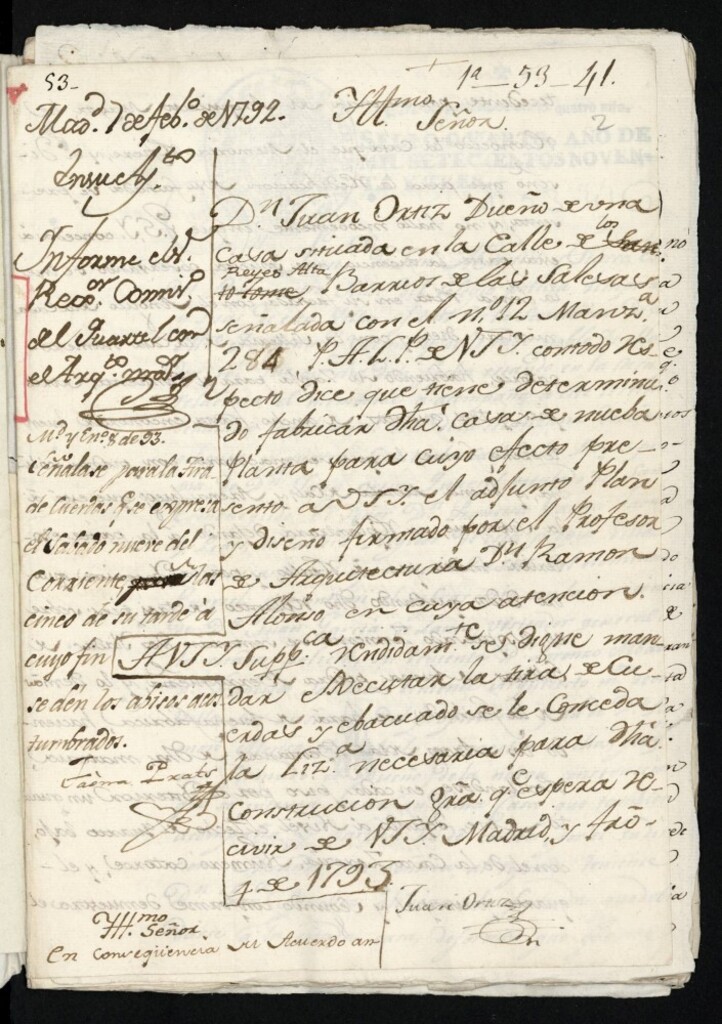 53-
1ª 53 41.
2
Madd. 7 de feb.º de 1792.
Yll.mo
Señor
En su Ay.to
Informe el S.r
Reg.or Comis.º
del Quartel con
el Arq.to may.r
M.d y En.º 8 de 93.
Señalase para la tira
de Cuerdas q.e se expresa
el Sabado nueve del
Corriente, a las
cinco de su tarde à
cuyo fin
se den los abisos acos
tumbrados.
D.n Juan Ortiz Dueño de una
Casa situada en la Calle de los
Reyes Alta Barrios de las Salesas
señalada con el n.º 12 Manz.a
284 P. A. L. P. de V.S.Y. con todo res
pecto dice que tiene determina
do fabricar dha. Casa de nueba
Planta para cuyo efecto pre
sento a V.S.Y. el adjunto Plan
y diseño firmado por el Profesor
de Arquitectura D.n Ramon
Alonso en cuya atencion.
A V.S.Y. Supp.ca rendidam.te se digne man
dar executar la tira de Cu
erdas y ebacuado se le Conceda
la Liz.a necesaria para dha.
Construccion gra. q.e espera re
civir de V.S.Y. Madrid, y Enro.
4 de 1793.
Juan Ortiz
Yll.mo
Señor
En Conseqüencia su Acuerdo an